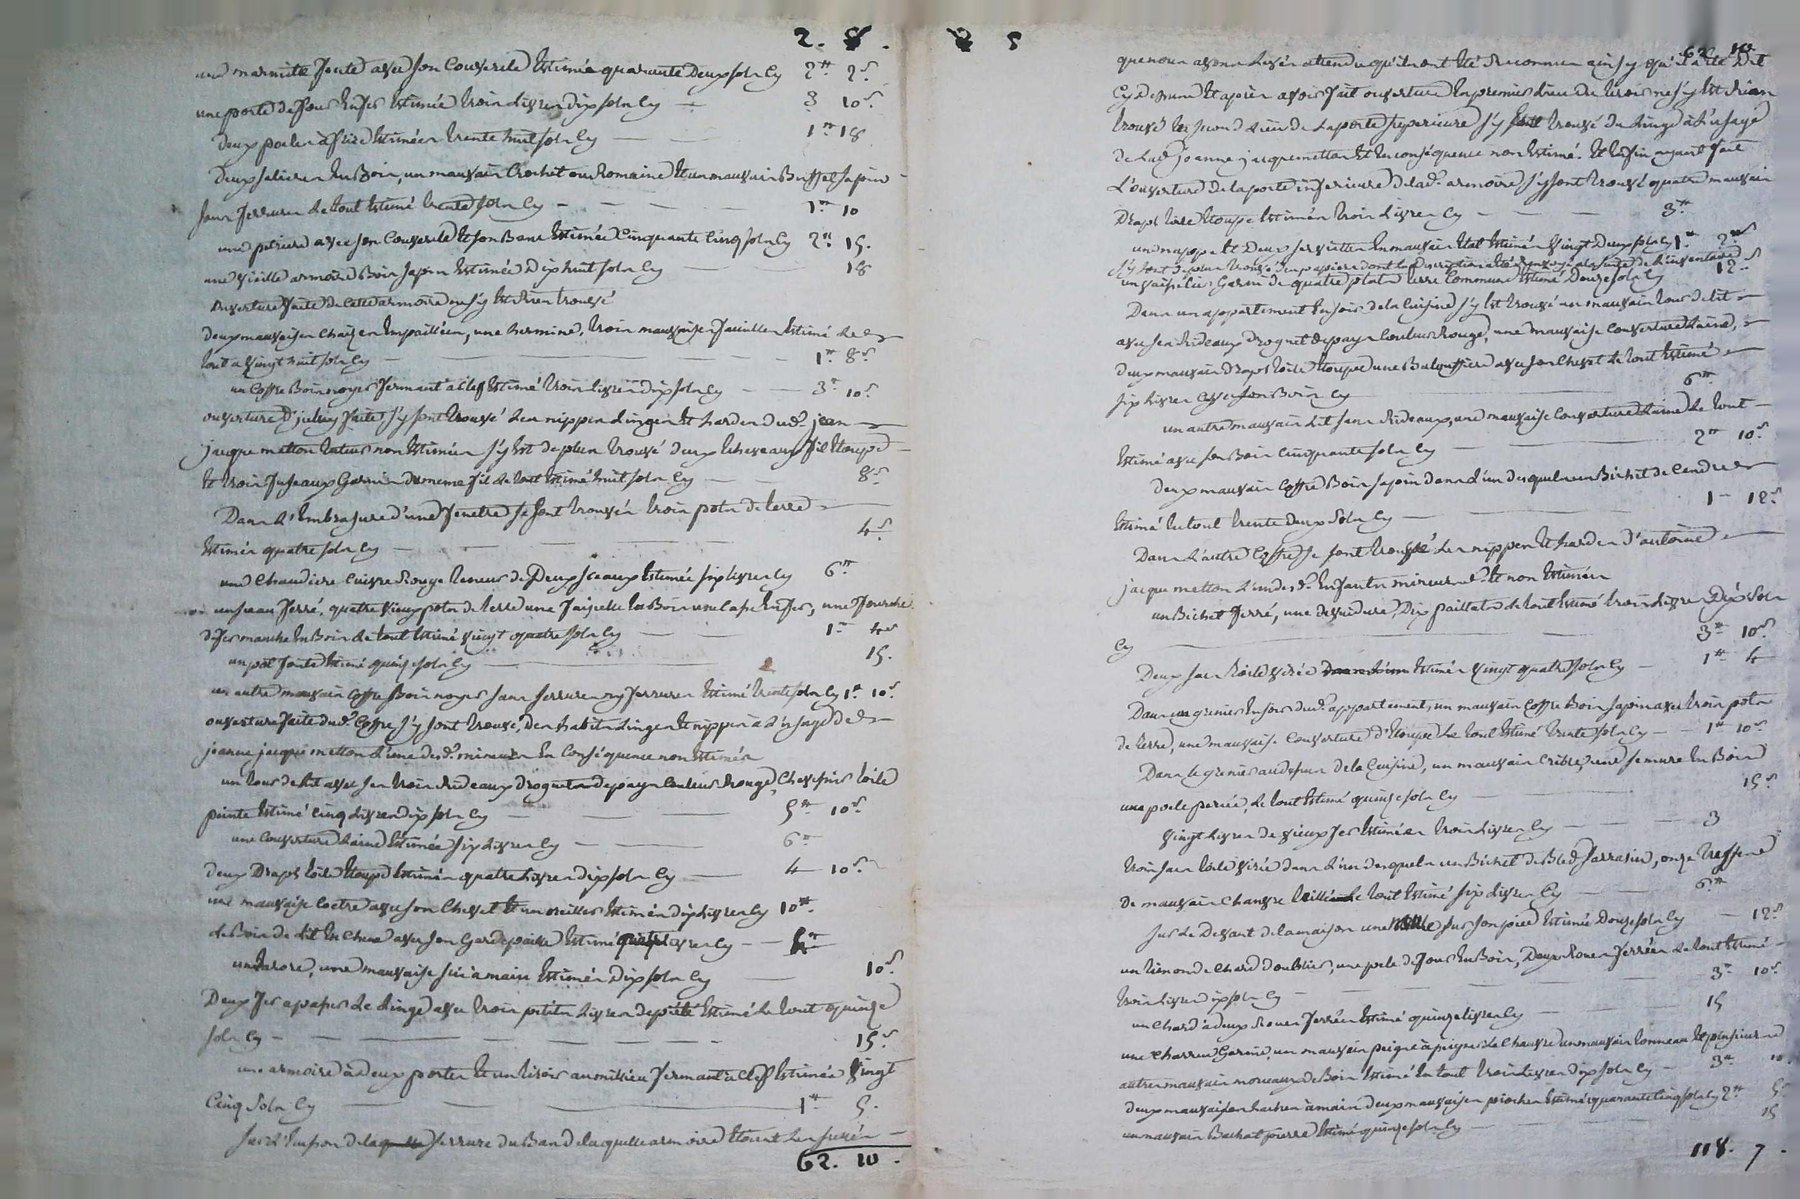 2.
une marmitte fonte avec son couvercle Estimée quarante Deux sols Cy 2# 2s
une porte de four En fer Estimée trois Livres dix sols Cy 3 10s
Deux poeles à frire Estimées trente huit sols Cy 1# 18
Deux salieres En Bois, un mauvais Crochet ou Romaine Et un mauvais Buffet sapin
sans serrures Le tout Estimé trente sols Cy 1# 10
une petriere avec son Couvercle Et son Banc Estimée Cinquante Cinq sols Cy 2# 15.
une vieille armoire Bois sapin Estimée Dix huit sols Cy 18
ouverture faite de Cette armoire ne s'y Est Rien trouvé
deux mauvaises Chaizes Empaillées, une hermine, trois mauvaises faucilles Estimé Le
tout a vingt huit sols Cy 1# 8s
un Coffre Bois noyer fermant a Clef Estimé trois Livres dix sols Cy 3# 10s
ouverture d'jceluy faite s'y sont trouvé Les nippes Linges Et hardes dud. jean
jacque metton non Estimées s'y Est de plus trouvé deux Echeveaux fil Etoupe
Et trois fuseaux Garnis du meme fil Le tout Estimé huit sols Cy 8s
Dans L'Embrasure d'une fenetre se sont trouvés trois pots de terre
Estimés quatre sols Cy 4s
une Chaudiere Cuivre Rouge teneur de Deux sceaux Estimée six Livres Cy 6#
un seau ferré, quatre vieux pots de terre une En Bois une En fer, une fourche
de fer manche En Bois Le tout Estimé vingt quatre sols Cy 1# 4s
un pot fonte Estimé quinze sols Cy 15.
un autre mauvais Coffre Bois noyer sans serrures ny ferrures Estimé trente sols Cy 1# 10s
ouverture faite dud. Coffre s'y sont trouvé, des habits Linges Et nippes à L'usage de
jeanne jacque metton L'une desd. mineurs En Conséquence non Estimés
un tour de Lit avec ses trois Rideaux Droguet de pays Couleur Rouge, toile
peinte Estimé Cinq Livres dix sols Cy 5# 10s
une Couverture Laine Estimée six Livres Cy 6#
deux Draps toile Etoupe Estimés quatre Livres dix sols Cy 4 10s
une mauvaise Coetre avec son Chevet Et un oreiller Estimés dix Livres Cy 10#
Le Bois de Lit En Chene avec son Gardepaille Estimé Livres Cy
une mauvaise scie à main Estimés Dix sols Cy 10s
Deux fers a passer Le Linge avec trois petits Livres de piété Estimé Le tout quinze
sols Cy 15s
une armoire à Deux portes Et un tiroir au milieu fermant a Clef Estimée Vingt
Cinq sols Cy 1# 5.
serrure du Bas de laquelle armoire
62. 10.
5
62 10
que nous avons Levés attendu qu'ils ont Eté Reconnus ainsy qu'il a Eté Dit
Cy Dessus Et après avoir fait ouverture En premier Lieu Du tiroir ne s'y Est Rien
trouvé En second Lieu de La porte superieure s'y trouvé du Linge à L'usage
de Lad. jeanne jacque metton Et En conséquence non Estimé. Et Enfin ayant fait
L'ouverture De la porte inferieure de lad. armoire s'y sont trouvé quatre mauvais
Draps toile Etoupe Estimés trois Livres Cy 3#
une nappe Et Deux serviettes En mauvais Etat Estimés Vingt Deux sols Cy 1# 2s
s'y sont de plus trouvé des papiers dont la Description a Eté Renvoyé à la suite de L'inventaire
un vaisselier Garni de quatre plats terre Commune Estimé Douze sols Cy 12s
Dans un appartement En soir de la Cuisine s'y Est trouvé un mauvais tour de Lit
avec ses Rideaux Droguet de pays Couleur Rouge, une mauvaise Couverture Laine,
deux mauvais Draps toile Etoupe une Balouffiere avec son Chevet Le tout Estimé
six Livres avec son Bois Cy 6#
un autre mauvais Lit sans Rideaux, une mauvaise Couverture Laine Le tout
Estimé avec son Bois Cinquante sols Cy 2# 10s
Deux mauvais Coffres Bois sapin dans L'un desquels un Bichet de Cendres
Estimé Le tout trente deux sols Cy 1 12s
Dans L'autre Coffre se sont trouvé Les nippes Et hardes d'antoine
jacque metton L'un desd. Enfants mineurs Et non Estimées
un Bichet ferré, une devuidure, Dix paillats Le tout Estimé trois Livres Dix sols
Cy 3# 10s
Deux sacs toile Estimés vingt quatre sols Cy 1# 4
Dans un grenier En soir dud. appartement, un mauvais Coffre Bois sapin avec trois pots
de terre, une mauvaise Couverture d'Etoupe Le tout Estimé trente sols Cy 1# 10s
Dans Le grenier au dessus de la Cuisine, un mauvais Crible, une En Bois
une poele percée, Le tout Estimé quinze sols Cy 15s
Vingt Livres de vieux fer Estimées trois Livres Cy 3
trois sacs toile dans L'un desquels un Bichet de Bled sarrasin, onze
de mauvais Chanvre Le tout Estimé six Livres Cy 6#
sur Le Devant de la maison une sur son pied Estimée Douze sols Cy 12s
un timon de Chard une pele de four En Bois, Deux Roues ferrées Le tout Estimé
trois Livres dix sols Cy 3# 10s
un Chard à deux Roues ferrées Estimé quinze Livres Cy 15
une Charrue Garnie, un mauvais peigne à peigner Le Chanvre un mauvais tonneau Et plusieurs
autres mauvais morceaux de Bois Estimé En tout trois Livres dix sols Cy 3# 10
deux mauvaises haches à main deux mauvaises pioches Estimé quarante Cinq sols Cy 2# 5s
un mauvais Bachat pierre Estimé quinze sols Cy 15
118. 7.